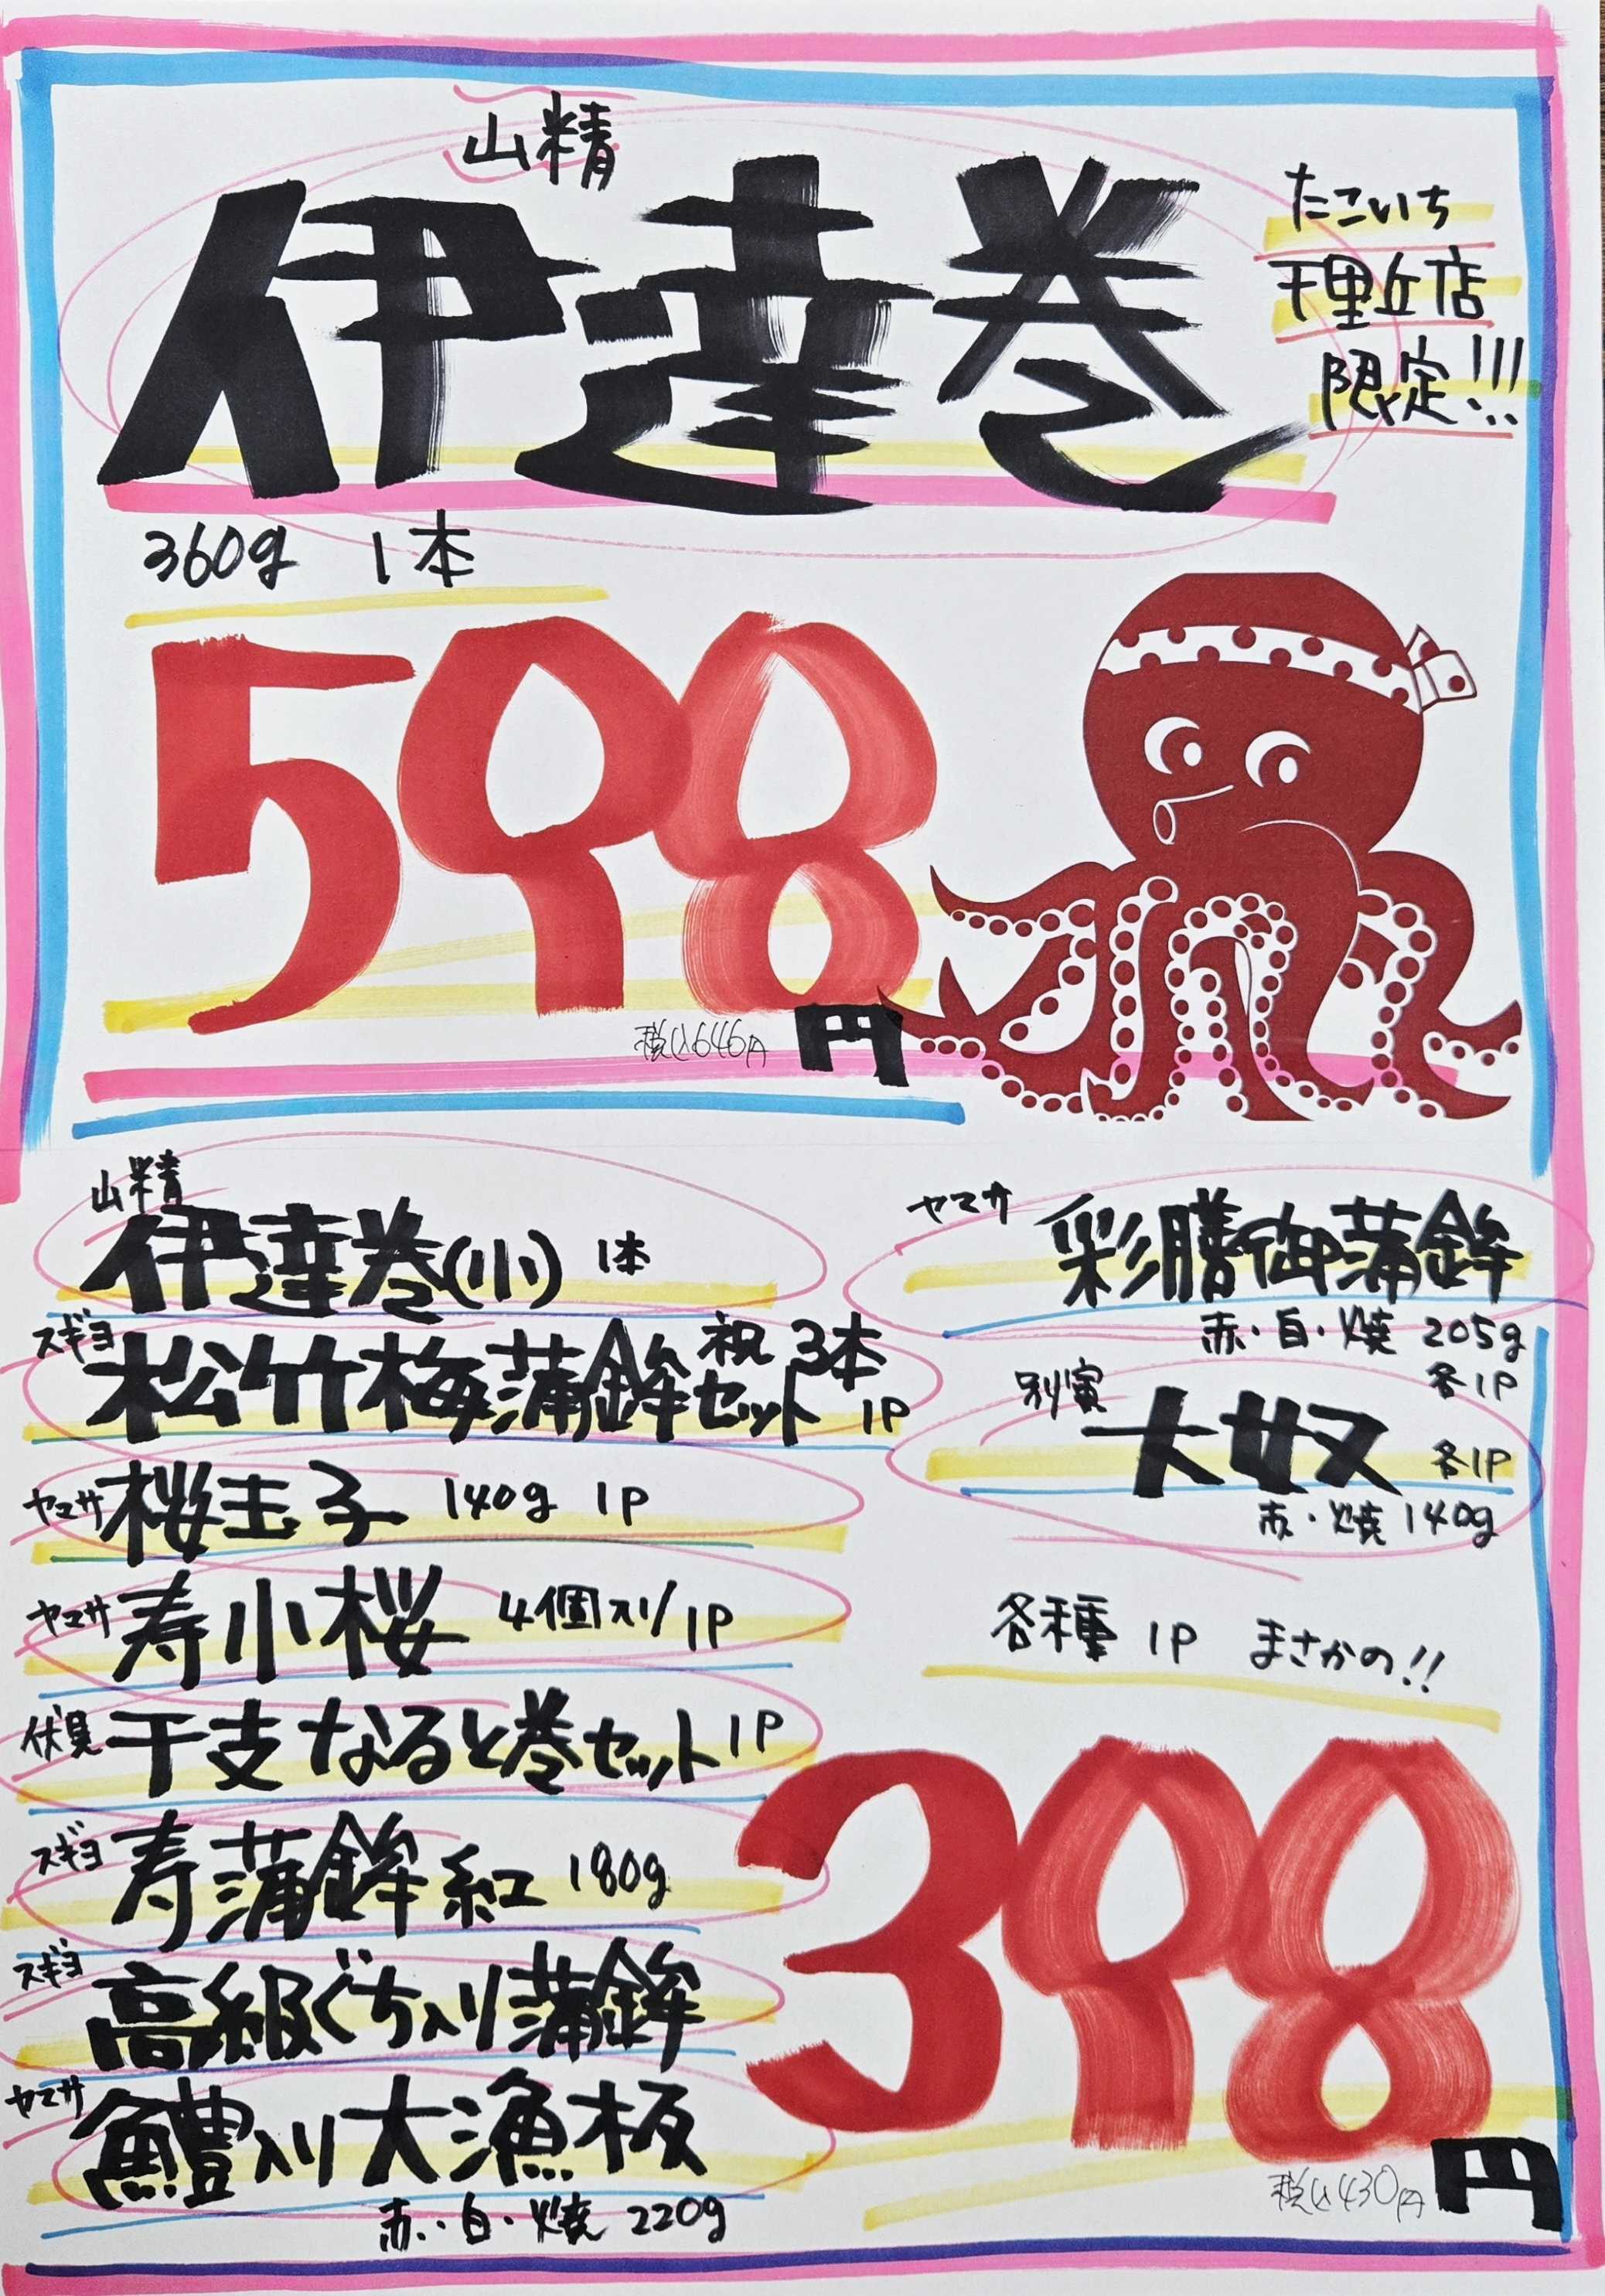 山精
伊達巻
たこいち
千里丘店
限定!!!
360g 1本
598円
税込646円
山精
伊達巻(小) 1本
スギヨ
松竹梅蒲鉾祝3本セット 1P
ヤマサ 桜玉子 140g 1P
ヤマサ 寿小桜 4個入り 1P
伏見 干支なると巻セット 1P
スギヨ 寿蒲鉾 紅 180g
スギヨ 高級ぐち入り蒲鉾
ヤマサ 鱧入り大漁板
赤・白・焼 220g
ヤマサ 彩膳御蒲鉾
赤・白・焼 205g
各1P
別寅
大奴 各1P
赤・焼 140g
各種 1P まさかの!!
398円
税込430円